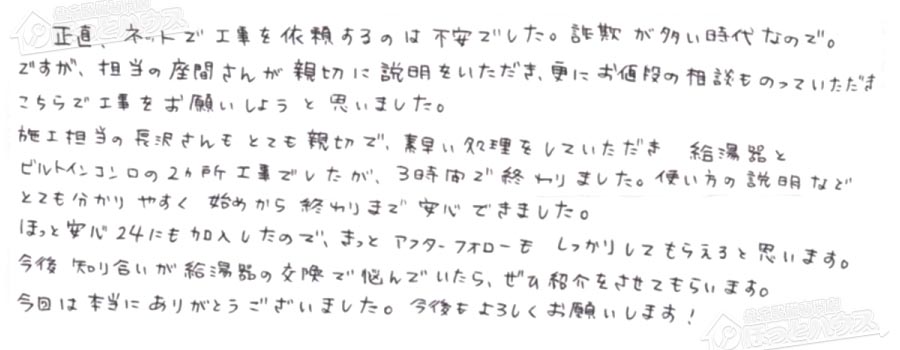 正直、ネットで工事を依頼するのは不安でした。詐欺が多い時代なので。
ですが、担当の座間さんが親切に説明をいただき、更にお値段の相談ものっていただき
こちらで工事をお願いしようと思いました。
施工担当の長沢さんもとても親切で、素早い処理をしていただき 給湯器と
ビルトインコンロの2ヵ所工事でしたが、3時間で終わりました。使い方の説明など
とても分かりやすく 始めから終わりまで安心できました。
ほっと安心24にも加入したので、きっとアフターフォローも しっかりしてもらえると思います。
今後 知り合いが給湯器の交換で悩んでいたら、ぜひ紹介をさせてもらいます。
今回は本当にありがとうございました。今後もよろしくお願いします!
ほっとハウス